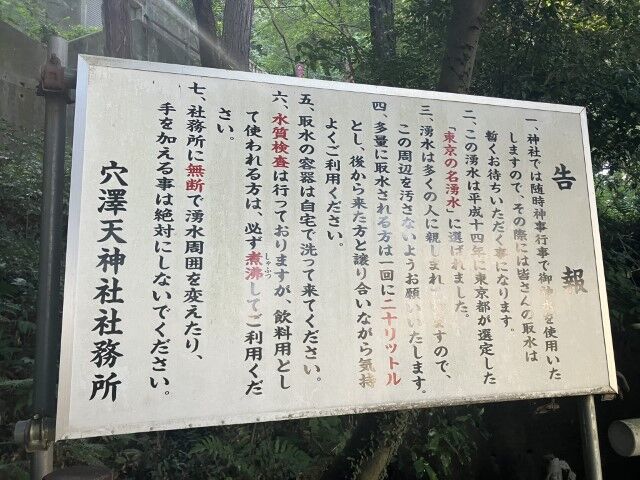 告報
一、神社では随時神事行事で御神水を使用いた
しますので、その際には皆さんの取水は
暫くお待ちいただく事になります。
二、この湧水は平成十四年に東京都が選定した
「東京の名湧水」に選ばれました。
三、湧水は多くの人に親しまれ ますので、
この周辺を汚さないようお願いいたします。
四、多量に取水される方は一回に二十リットル
とし、後から来た方と譲り合いながら気持
よくご利用ください。
五、取水の容器は自宅で洗って来てください。
六、水質検査は行っておりますが、飲料用とし
て使われる方は、必ず煮沸してご利用くだ
しゃふつ
さい。
七、社務所に無断で湧水周囲を変えたり、
手を加える事は絶対にしないでください。
穴澤天神社社務所